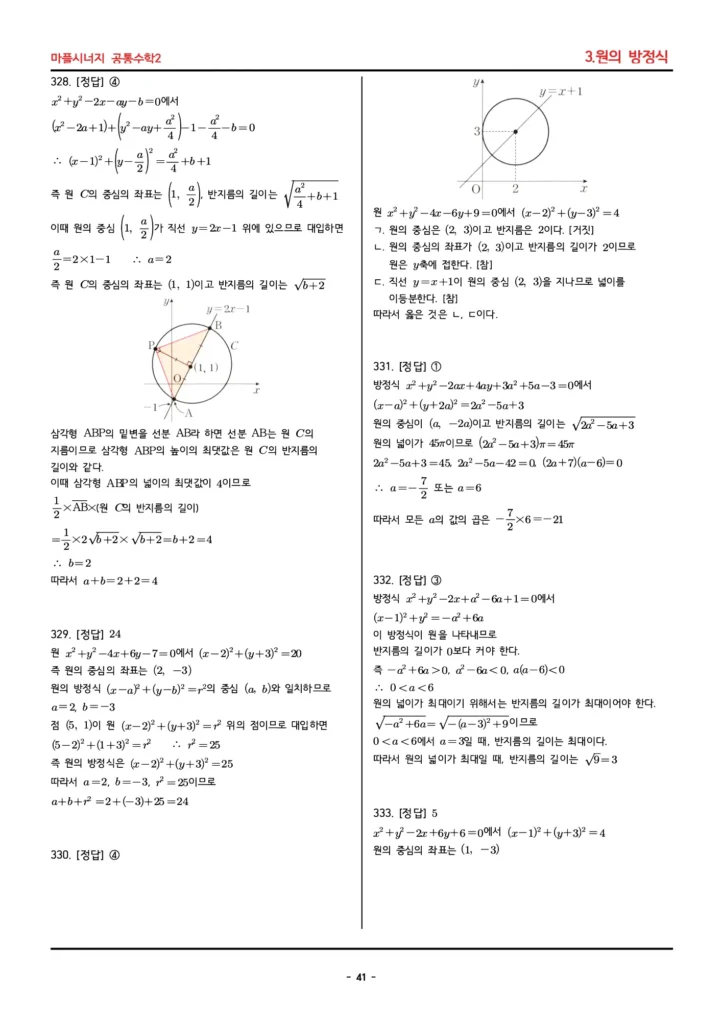 마플시너지 공통수학2
3.원의 방정식
328. [정답] ④
x²+y²−2x−ay−b=0에서
(x²−2a+1)+(y²−ay+a²/4)−1−a²/4−b=0
∴ (x−1)²+(y−a/2)²=a²/4+b+1
즉 원 C의 중심의 좌표는 (1, a/2), 반지름의 길이는 √(a²/4+b+1)
이때 원의 중심 (1, a/2)가 직선 y=2x−1 위에 있으므로 대입하면
a/2=2×1−1 ∴ a=2
즉 원 C의 중심의 좌표는 (1, 1)이고 반지름의 길이는 √(b+2)
y
y=2x−1
B
P
C
(1, 1)
O
x
−1
A
삼각형 ABP의 밑변을 선분 AB라 하면 선분 AB는 원 C의
지름이므로 삼각형 ABP의 높이의 최댓값은 원 C의 반지름의
길이와 같다.
이때 삼각형 ABP의 넓이의 최댓값이 4이므로
1/2×A̅B̅×(원 C의 반지름의 길이)
=1/2×2√(b+2)×√(b+2)=b+2=4
∴ b=2
따라서 a+b=2+2=4
329. [정답] 24
원 x²+y²−4x+6y−7=0에서 (x−2)²+(y+3)²=20
즉 원의 중심의 좌표는 (2, −3)
원의 방정식 (x−a)²+(y−b)²=r²의 중심 (a, b)와 일치하므로
a=2, b=−3
점 (5, 1)이 원 (x−2)²+(y+3)²=r² 위의 점이므로 대입하면
(5−2)²+(1+3)²=r² ∴ r²=25
즉 원의 방정식은 (x−2)²+(y+3)²=25
따라서 a=2, b=−3, r²=25이므로
a+b+r²=2+(−3)+25=24
330. [정답] ④
y
y=x+1
3
O
2
x
원 x²+y²−4x−6y+9=0에서 (x−2)²+(y−3)²=4
ㄱ. 원의 중심은 (2, 3)이고 반지름은 2이다. [거짓]
ㄴ. 원의 중심의 좌표가 (2, 3)이고 반지름의 길이가 2이므로
원은 y축에 접한다. [참]
ㄷ. 직선 y=x+1이 원의 중심 (2, 3)을 지나므로 넓이를
이등분한다. [참]
따라서 옳은 것은 ㄴ, ㄷ이다.
331. [정답] ①
방정식 x²+y²−2ax+4ay+3a²+5a−3=0에서
(x−a)²+(y+2a)²=2a²−5a+3
원의 중심이 (a, −2a)이고 반지름의 길이는 √(2a²−5a+3)
원의 넓이가 45π이므로 (2a²−5a+3)π=45π
2a²−5a+3=45, 2a²−5a−42=0, (2a+7)(a−6)=0
∴ a=−7/2 또는 a=6
따라서 모든 a의 값의 곱은 −7/2×6=−21
332. [정답] ③
방정식 x²+y²−2x+a²−6a+1=0에서
(x−1)²+y²=−a²+6a
이 방정식이 원을 나타내므로
반지름의 길이가 0보다 커야 한다.
즉 −a²+6a>0, a²−6a<0, a(a−6)<0
∴ 0<a<6
원의 넓이가 최대이기 위해서는 반지름의 길이가 최대이어야 한다.
√(−a²+6a)=√(−(a−3)²+9)이므로
0<a<6에서 a=3일 때, 반지름의 길이는 최대이다.
따라서 원의 넓이가 최대일 때, 반지름의 길이는 √9=3
333. [정답] 5
x²+y²−2x+6y+6=0에서 (x−1)²+(y+3)²=4
원의 중심의 좌표는 (1, −3)
- 41 -